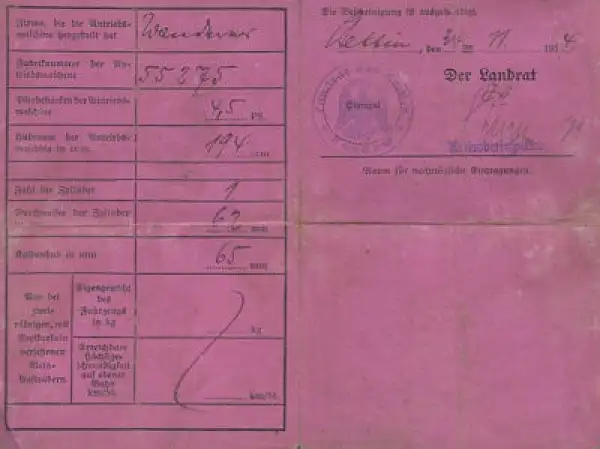 Firma, die die Antriebs-
maschine hergestellt hat
Wanderer
Fabriknummer der An-
triebsmaschine
55275
Pferdestärken der Antriebs-
maschine
4,5 PS.
Hubraum der Antriebs-
maschine in ccm
194 ccm
Zahl der Zylinder
1
Durchmesser der Zylinder
mm
Kolbenhub in mm
65 mm
Nur bei
zwei-
rädrigen, mit
versehenen
Klein-
Eigengewicht
des
Fahrzeugs
in kg
kg
Erreichbare
Höchstge-
schwindigkeit
auf ebener
Bahn
km/St.
km/St.
Die Bescheinigung ist ausgefertigt.
, den 11. 193
Der Landrat
Stempel
Raum für nachträgliche Eintragungen.